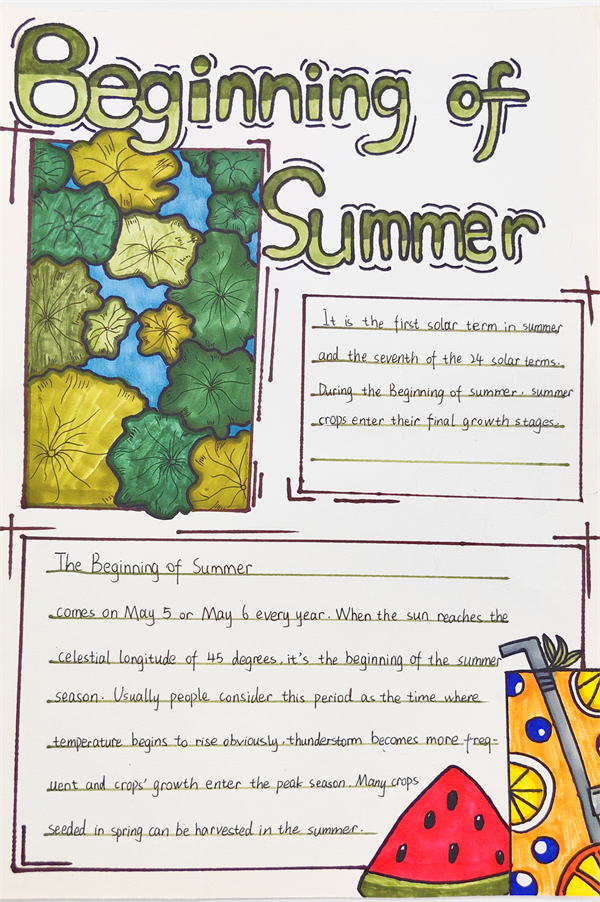 Beginning of
Summer
It is the first solar term in summer
and the seventh of the 24 solar terms.
During the Beginning of summer, summer
crops enter their final growth stages.
The Beginning of Summer
comes on May 5 or May 6 every year. When the sun reaches the
celestial longitude of 45 degrees, it's the beginning of the summer
season. Usually people consider this period as the time where
temperature begins to rise obviously, thunderstorm becomes more freq-
uent and crops' growth enter the peak season. Many crops
seeded in spring can be harvested in the summer.